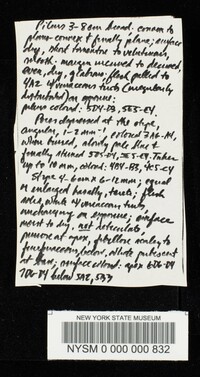 Pileus 3-8 cm broad, convex to
plano-convex & finally plane; surface
dry, short tomentose to velutinous,
smooth; margin incurved to decurved,
even, dry, glabrous; flesh
4A2 & vinaceous tints (
) on exposure;
pileus colored: 5D4-D3, 5E5-E4.
Pores depressed at the stipe,
angular, 1-2 mm, colored 3A6-A4,
when bruised, slowly pale blue &
finally stained 5D5-E4, 5E5-E4. Tubes
up to 10 mm, colored: 4B4-B3, 4C5-C4
Stipe 4-6 cm x 6-12 mm; equal
or enlarged basally, terete; flesh
solid, white & vinaceous tints
on exposure; surface
moist to dry, not reticulate,
at apex, scaly to
below, white pubescent
at base; surface colored: apex 6D6-D4
7D6-D4 below 5A2, 5B3
NEW YORK STATE MUSEUM
NYSM 0 000 000 832